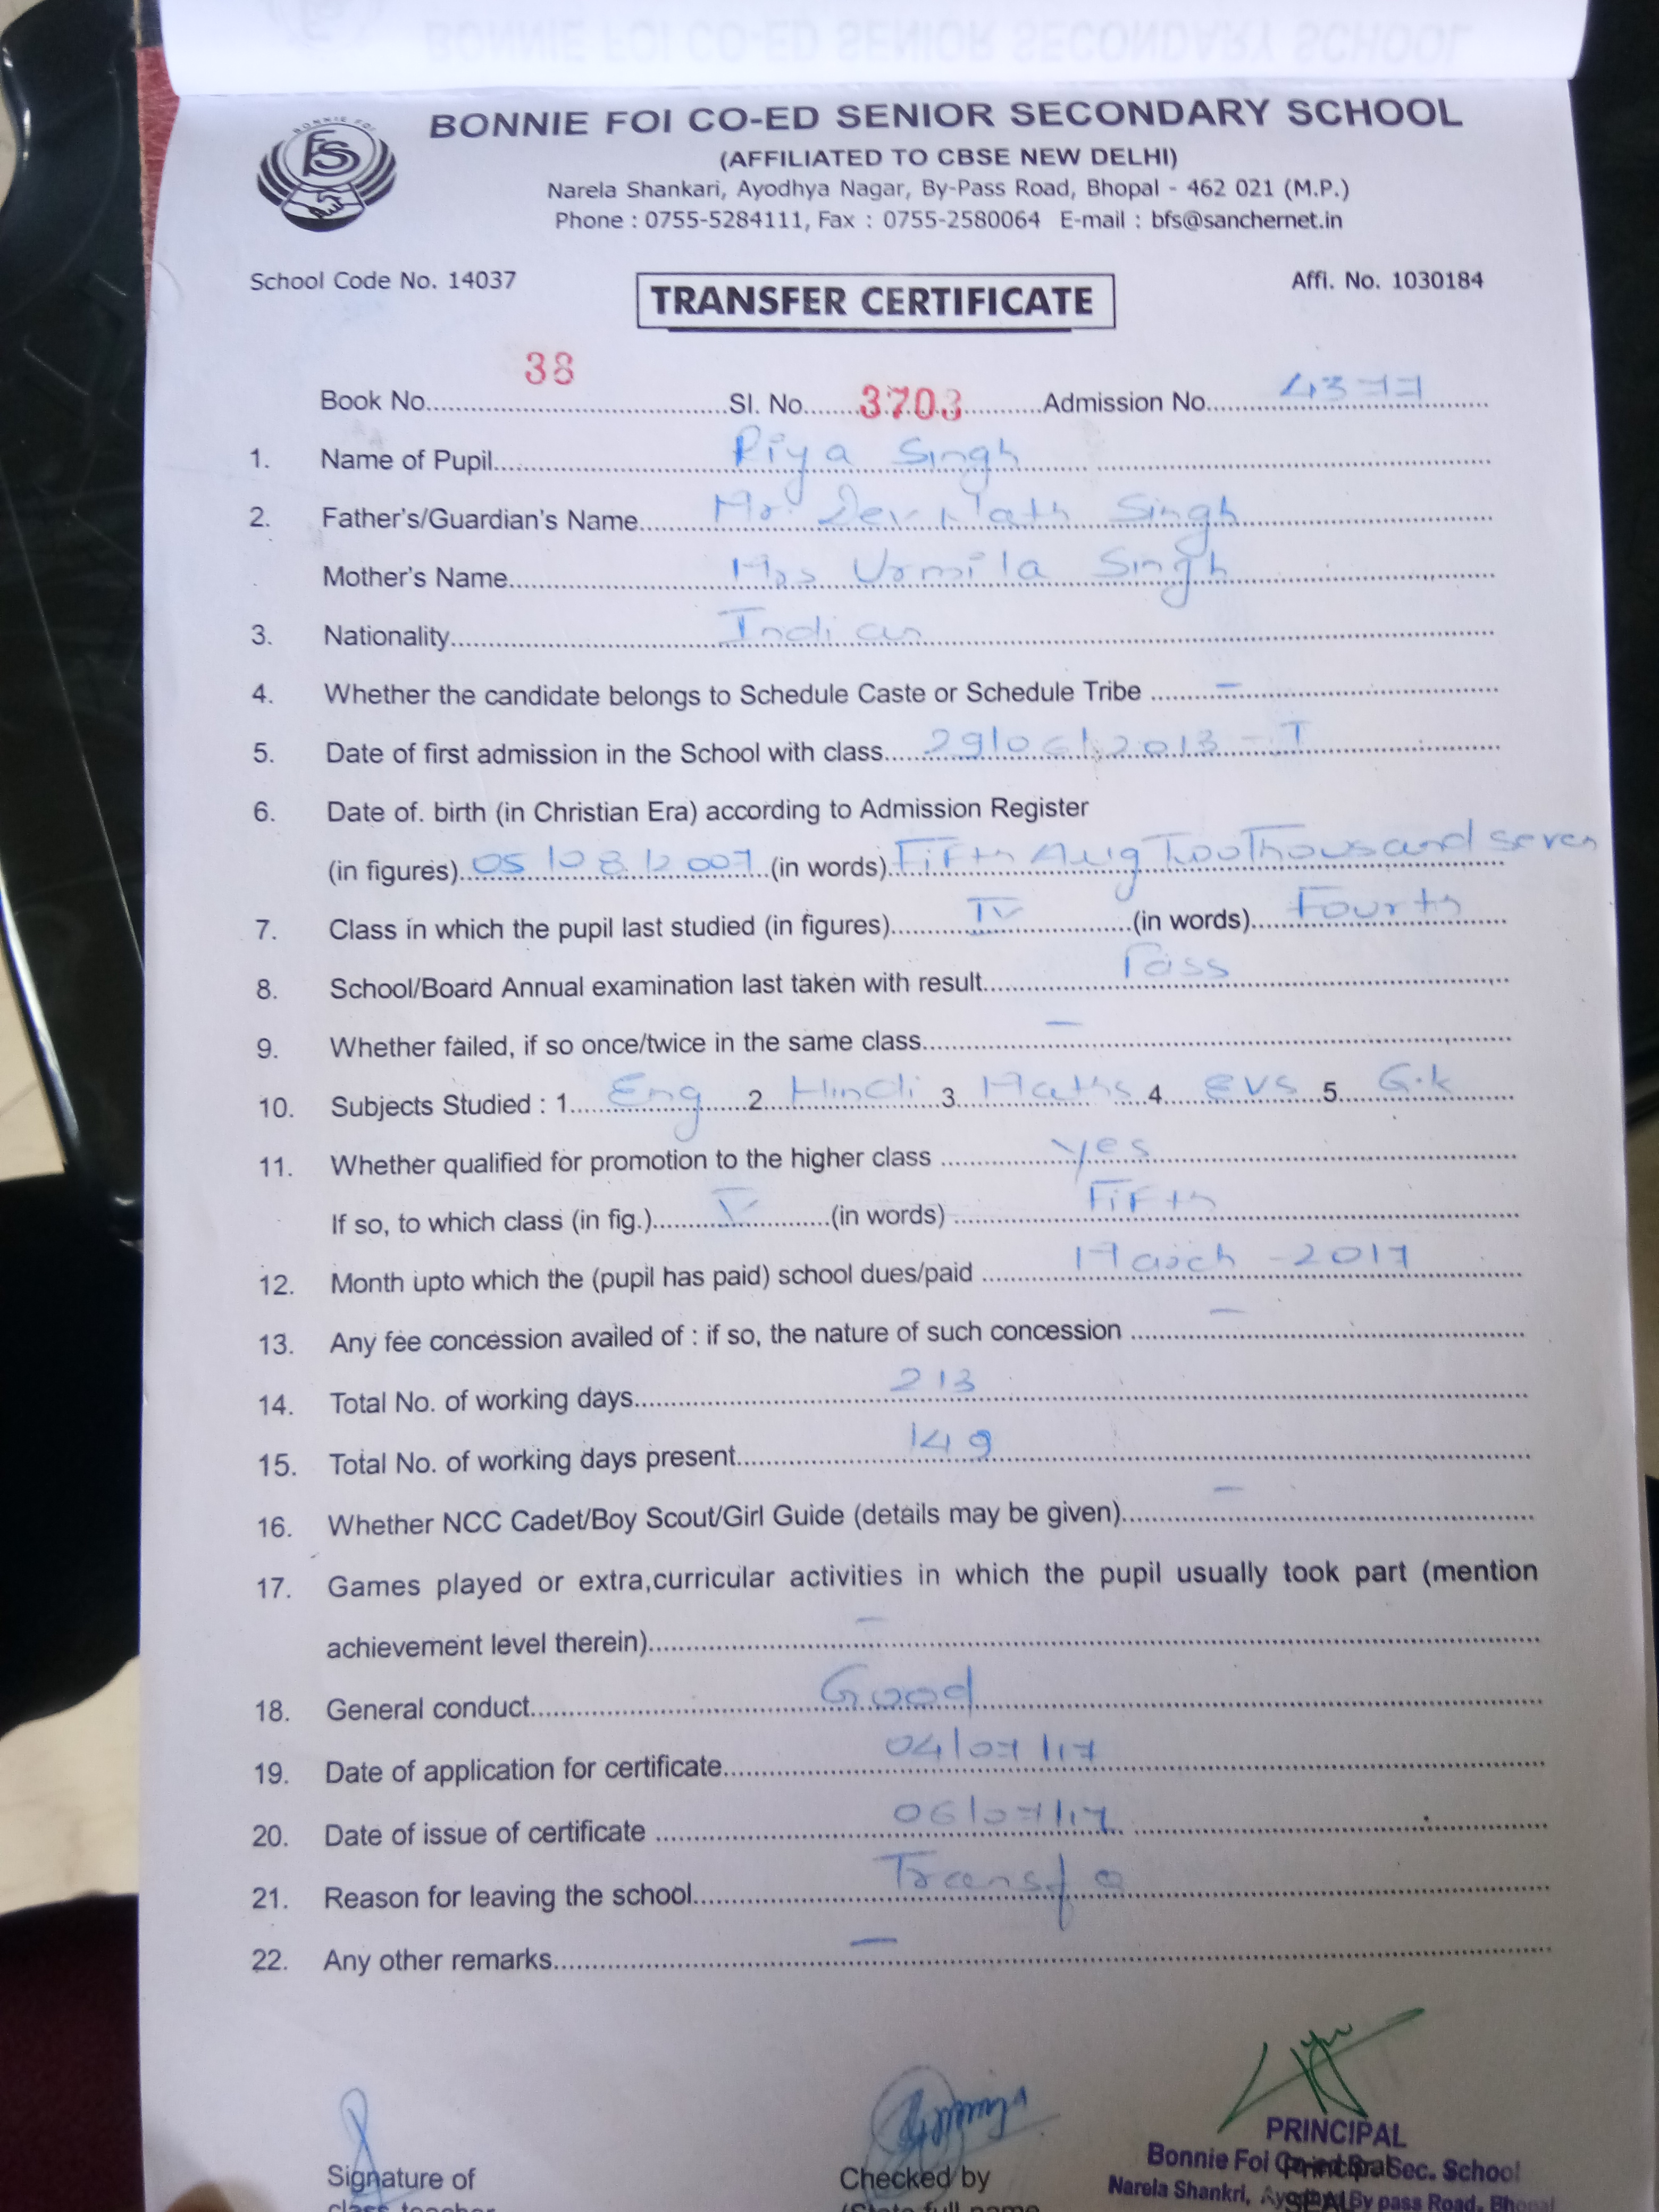 BONNIE FOI CO-ED SENIOR SECONDARY SCHOOL
BONNIE FOI
BONNIE FOI CO-ED SENIOR SECONDARY SCHOOL
(AFFILIATED TO CBSE NEW DELHI)
Narela Shankari, Ayodhya Nagar, By-Pass Road, Bhopal - 462 021 (M.P.)
Phone : 0755-5284111, Fax : 0755-2580064 E-mail : bfs@sanchernet.in
School Code No. 14037 TRANSFER CERTIFICATE Affi. No. 1030184
Book No. 38 Sl. No. 3703 Admission No. 4377
1. Name of Pupil Riya Singh
2. Father's/Guardian's Name Mr. Dev Nath Singh
Mother's Name Mrs Urmila Singh
3. Nationality Indian
4. Whether the candidate belongs to Schedule Caste or Schedule Tribe –
5. Date of first admission in the School with class 29/06/2013 - I
6. Date of. birth (in Christian Era) according to Admission Register
(in figures) 05/08/2007 (in words) Fifth Aug Two Thousand seven
7. Class in which the pupil last studied (in figures) IV (in words) Fourth
8. School/Board Annual examination last taken with result Pass
9. Whether failed, if so once/twice in the same class –
10. Subjects Studied : 1. Eng 2. Hindi 3. Maths 4. EVS 5. G.k
11. Whether qualified for promotion to the higher class yes
If so, to which class (in fig.) V (in words) Fifth
12. Month upto which the (pupil has paid) school dues/paid March - 2017
13. Any fee concession availed of : if so, the nature of such concession –
14. Total No. of working days 213
15. Total No. of working days present 149
16. Whether NCC Cadet/Boy Scout/Girl Guide (details may be given) –
17. Games played or extra,curricular activities in which the pupil usually took part (mention
achievement level therein) –
18. General conduct Good
19. Date of application for certificate 04/07/17
20. Date of issue of certificate 06/07/17
21. Reason for leaving the school
22. Any other remarks –
PRINCIPAL
Bonnie Foi Co-ed Sr. Sec. School
Signature of Checked by Principal
Narela Shankri, By pass Road, Bhopal
class teacher (State full name SEAL